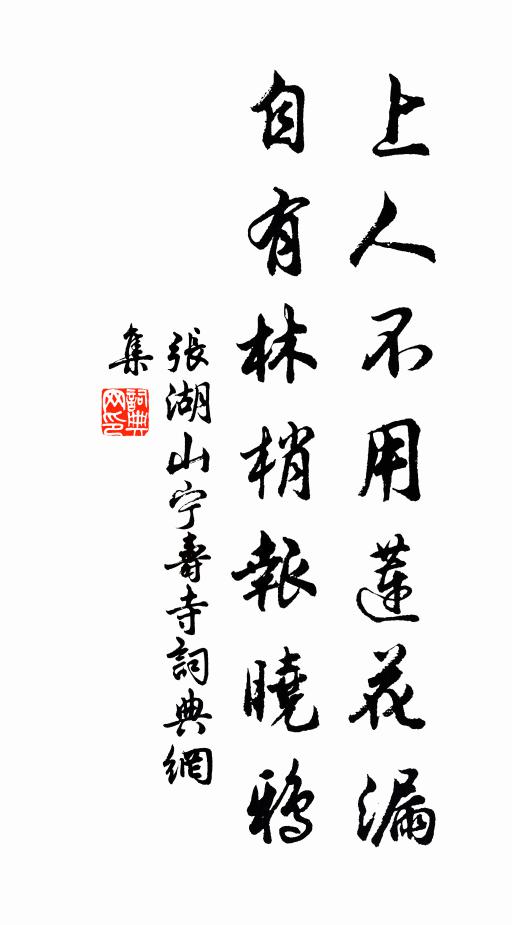 上人不用蓮花漏
自有林梢報曉鴉
張湖山宁壽寺詞典網
集
詞典網印